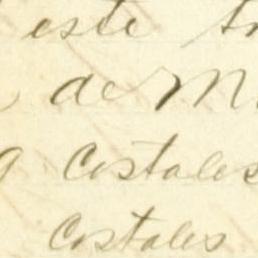 este
de M
Costales
Costales